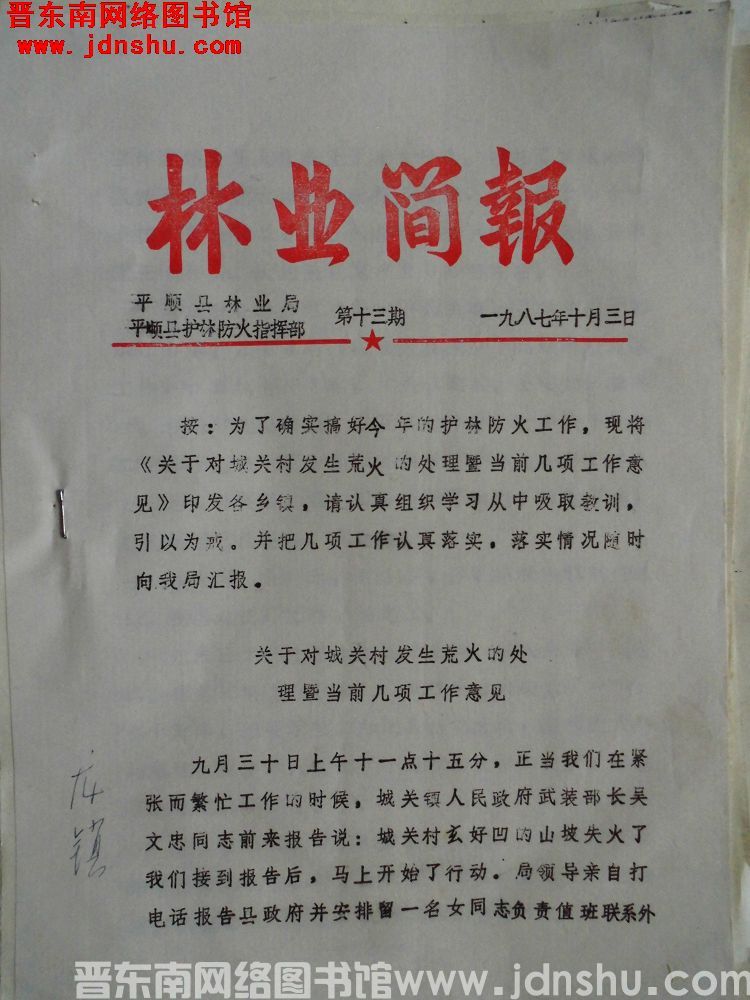 晋东南网络图书馆
www.jdnshu.com
林业简报
平顺县林业局
平顺县护林防火指挥部
第十三期
一九八七年十月三日
按：为了确实搞好今年的护林防火工作，现将
《关于对城关村发生荒火的处理暨当前几项工作意
见》印发各乡镇，请认真组织学习从中吸取教训，
引以为戒。并把几项工作认真落实，落实情况随时
向我局汇报。
关于对城关村发生荒火的处
理暨当前几项工作意见
九月三十日上午十一点十五分，正当我们在紧
张而繁忙工作的时候，城关镇人民政府武装部长吴
文忠同志前来报告说：城关村玄好凹的山坡失火了
我们接到报告后，马上开始了行动。局领导亲自打
电话报告县政府并安排留一名女同志负责值班联系外
镇
晋东南网络图书馆www.jdnshu.com